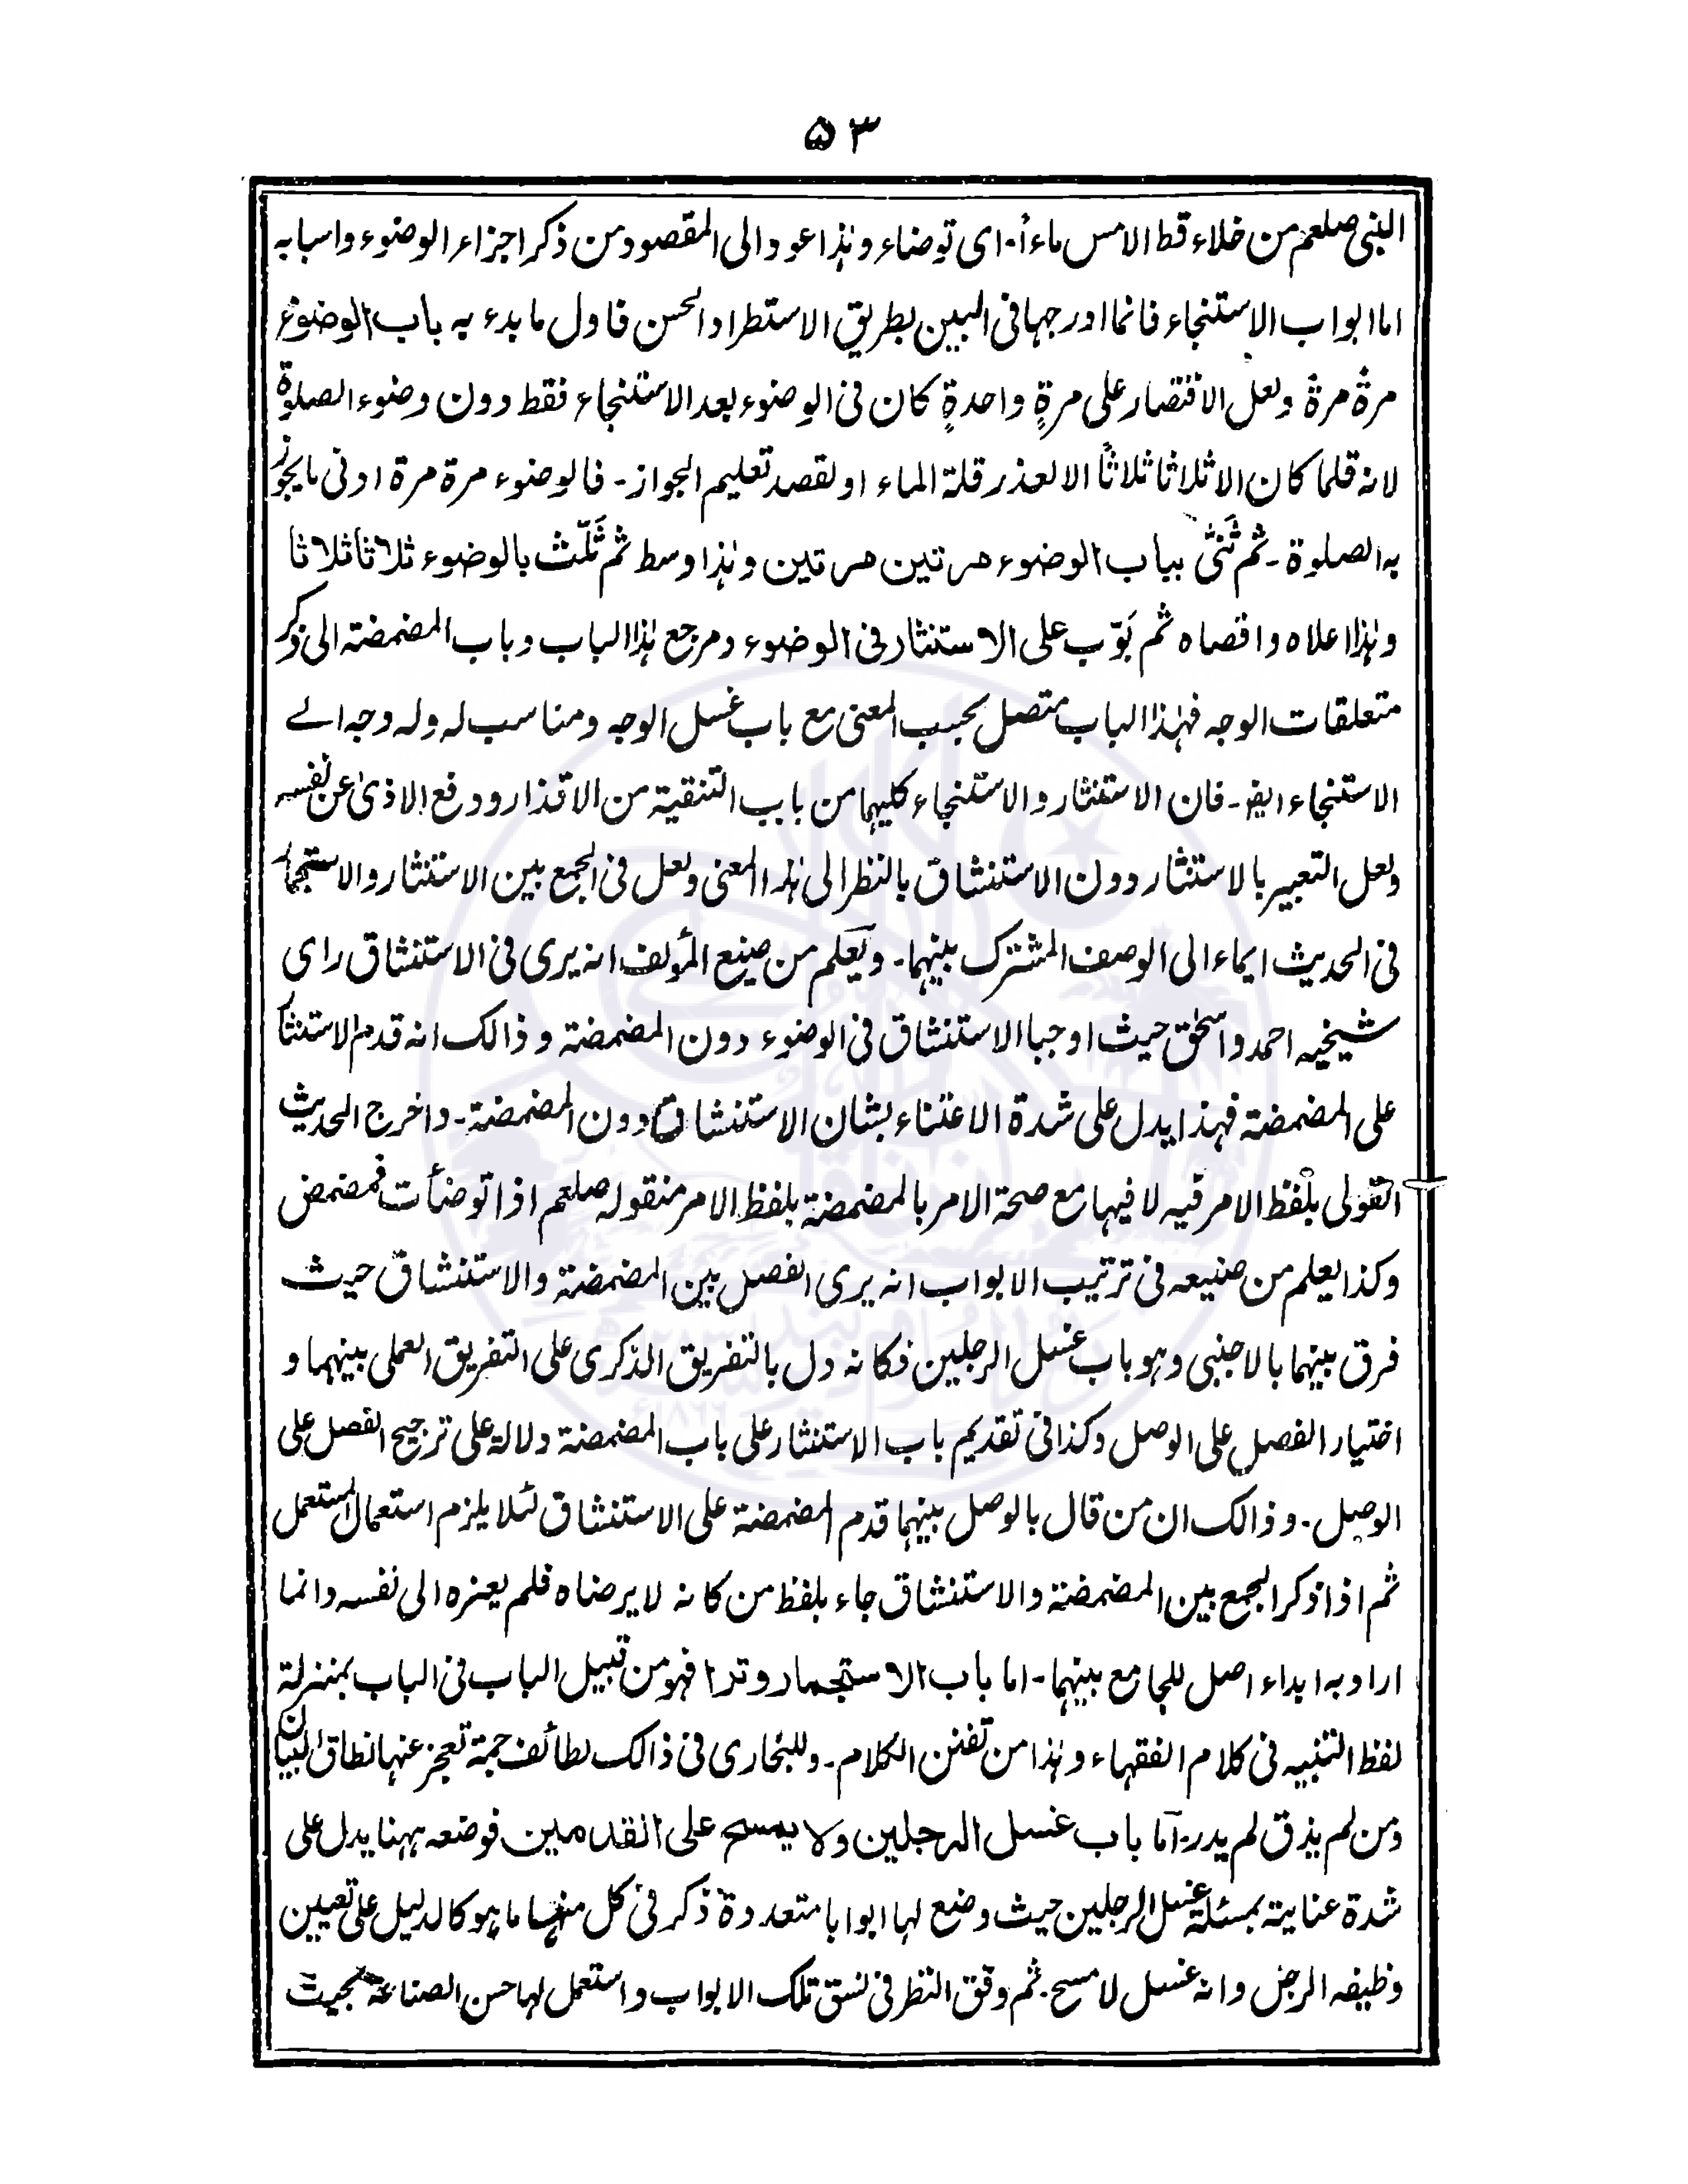 ۵۳
النبی صلعم من خلاء قط الامس ماءأ۔ ای توضاء وہٰذا عود الی المقصود من ذکر اجزاء الوضوء واسبابہ
اما ابواب الاستنجاء فانما ادرجہا فی البین بطریق الاستطراد الحسن فاول ما بدء بہ باب الوضوء
مرۃً مرۃً ولعل الاقتصار علی مرۃٍ واحدۃٍ کان فی الوضوء بعد الاستنجاء فقط دون وضوء الصلوۃ
لانہ قلما کان الاثلاثا ثلاثاً الا لعذر قلۃ الماء او لقصد تعلیم الجواز۔ فالوضوء مرۃ مرۃ ادنی ما یجوز
بہ الصلوۃ۔ ثم ثَنّیٰ بباب الوضوء مرتین مرتین وہٰذا وسط ثم ثَلّث بالوضوء ثلاثا ثلاثا
وہٰذا اعلاہ واقصاہ ثم بَوّب علی الاستنثار فی الوضوء ومرجع ہٰذا الباب وباب المضمضۃ الی ذکر
متعلقات الوجہ فہٰذا الباب متصل بحسب المعنی مع باب غسل الوجہ ومناسب لہ ولہ وجہ الے
الاستنجاء ایضا۔ فان الاستنثار والاستنجاء کلیہما من باب التنقیۃ من الاقذار ودفع الاذیٰ عن نفسہ
ولعل التعبیر بالاستنثار دون الاستنشاق بالنظر الی ہٰذا المعنی ولعل فی الجمع بین الاستنثار والاستجمار
فی الحدیث ایماء الی الوصف المشترک بینہما۔ ویَعلم من صنیع المؤلف انہ یری فی الاستنشاق رای
شیخیہ احمد واسحٰق حیث اوجبا الاستنشاق فی الوضوء دون المضمضۃ وذالک انہ قدم الاستنشا
علی المضمضۃ فہذا یدل علی شدۃ الاعتناء بشان الاستنشاق دون المضمضۃ۔ واخرج الحدیث
القولی بلفظ الامر فیہ لا فیہا مع صحۃ الامر بالمضمضۃ بلفظ الامر منقولہ صلعم اذا توضأت فمضمض
وکذا یعلم من صنیعہ فی ترتیب الابواب انہ یری الفصل بین المضمضۃ والاستنشاق حیث
فرق بینہما بالاجنبی وہو باب غسل الرجلین فکانہ دل بالتفریق الذکری علی التفریق العملی بینہما و
اختیار الفصل علی الوصل وکذا فی تقدیم باب الاستنثار علی باب المضمضۃ دلالۃ علی ترجیح الفصل علی
الوصل۔ وذالک ان من قال بالوصل بینہما قدم المضمضۃ علی الاستنشاق لئلا یلزم استعمال المستعمل
ثم اذا ذکر الجمع بین المضمضۃ والاستنشاق جاء بلفظ من کانہ لا یرضاہ فلم یعزہ الی نفسہ وانما
اراد بہ ابداء اصل للجامع بینہما۔ اما باب الاستجمار وترا فہو من قبیل الباب فی الباب بمنزلۃ
لفظ التنبیہ فی کلام الفقہاء وہٰذا من تفنن الکلام۔ وللبخاری فی ذالک لطائف جمۃ تعجز عنہا نطاق البیان
ومن لم یذق لم یدر۔ آما باب غسل الرجلین ولا یمسح علی القدمین فوضعہ ہہنا یدل علی
شدۃ عنایتہ بمسئلۃ غسل الرجلین حیث وضع لہا ابوابا متعددۃ ذکر فی کل منہا ما ہو کالدلیل علی تعیین
وظیفہ الرجل وانہ غسل لا مسح۔ ثم وقق النظر فی نسق تلک الابواب واستعمل لہا حسن الصناعۃ بحیث